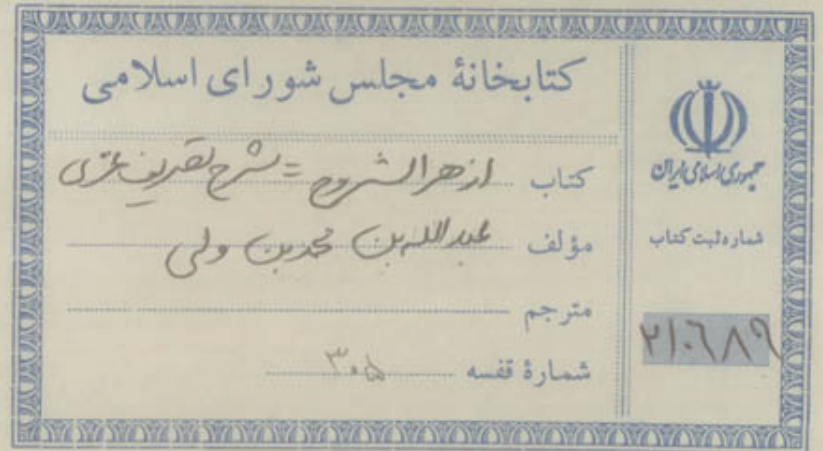 کتابخانهٔ مجلس شورای اسلامی
کتاب ازهر الشروح = شرح تصریف عزی
مؤلف عبدالله بن محمد بن ولی
مترجم
شمارهٔ قفسه ۳۰۵
جمهوری اسلامی ایران
شماره ثبت کتاب
۲۱۰۶۸۹